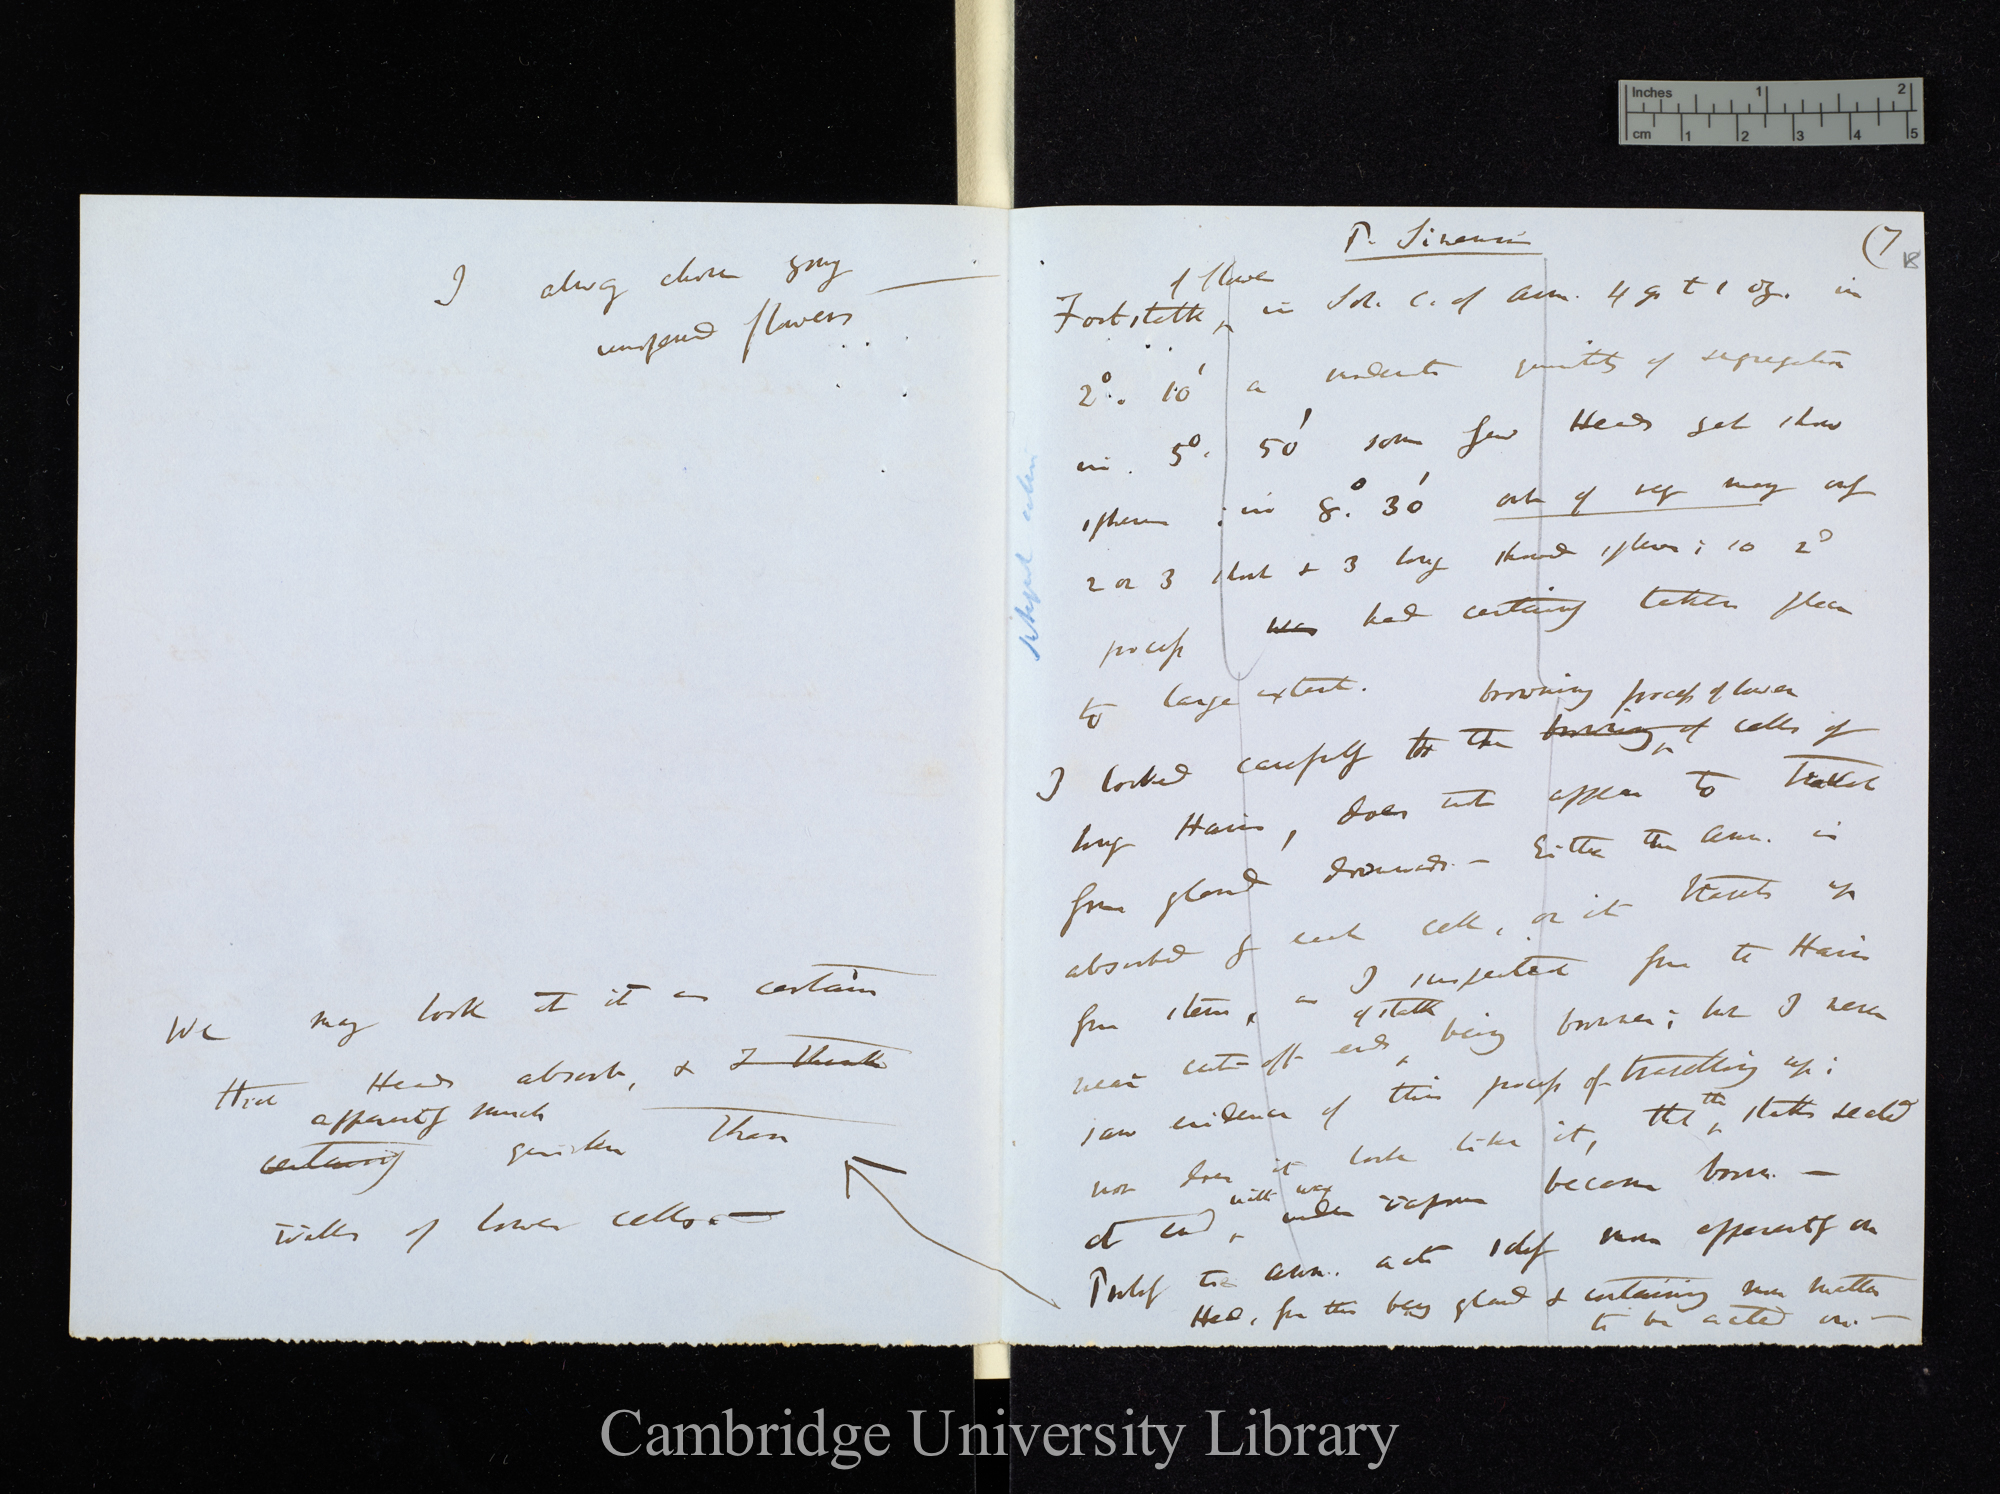 I alway chose young
unopened flowers
We may look at it as certain
that Heads absorb, & I think
apparently much
certainly quicker than
walls of lower cells.—
P. Sinensis
(7
18
of flower
Footstalk, in Sol. C. of Am. 4 gr to 1 oz. in
2°. 10' a moderate quantity of segregation
in 5°. 50' some few Heads get show
spheres : in 8°. 30' only
2 or 3 short & 3 long showed spheres; so 2°
process was had certainly taken place
to large extent.
browning process of lower
I looked carefully to the browning of cells of
long Hairs, does not appear to travel
from gland downwards.— Either the Am. is
absorbed by each cell, or it travels up
from stem, as I suspected from the Hairs
of stalk
near cut-off ends, being browner; but I never
saw evidence of this process of travelling up;
nor does it look like it, that the stalks sealed
with wax
at end, under vapour become brown.—
Probly the Am. acts solely more apparently on
Head, from this being gland & containing more matter
to be acted on.—
Inches 1 2
cm 1 2 3 4 5
Cambridge University Library